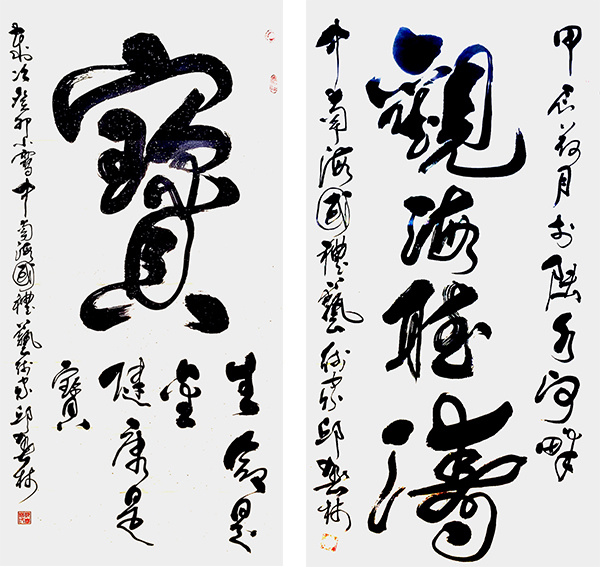 寶
生命是
金
健康是
寶
歲次癸卯小雪中南海國禮藝術家邱春林
甲辰荷月於陸水河畔
觀海聽濤
中南海國禮藝術家邱春林